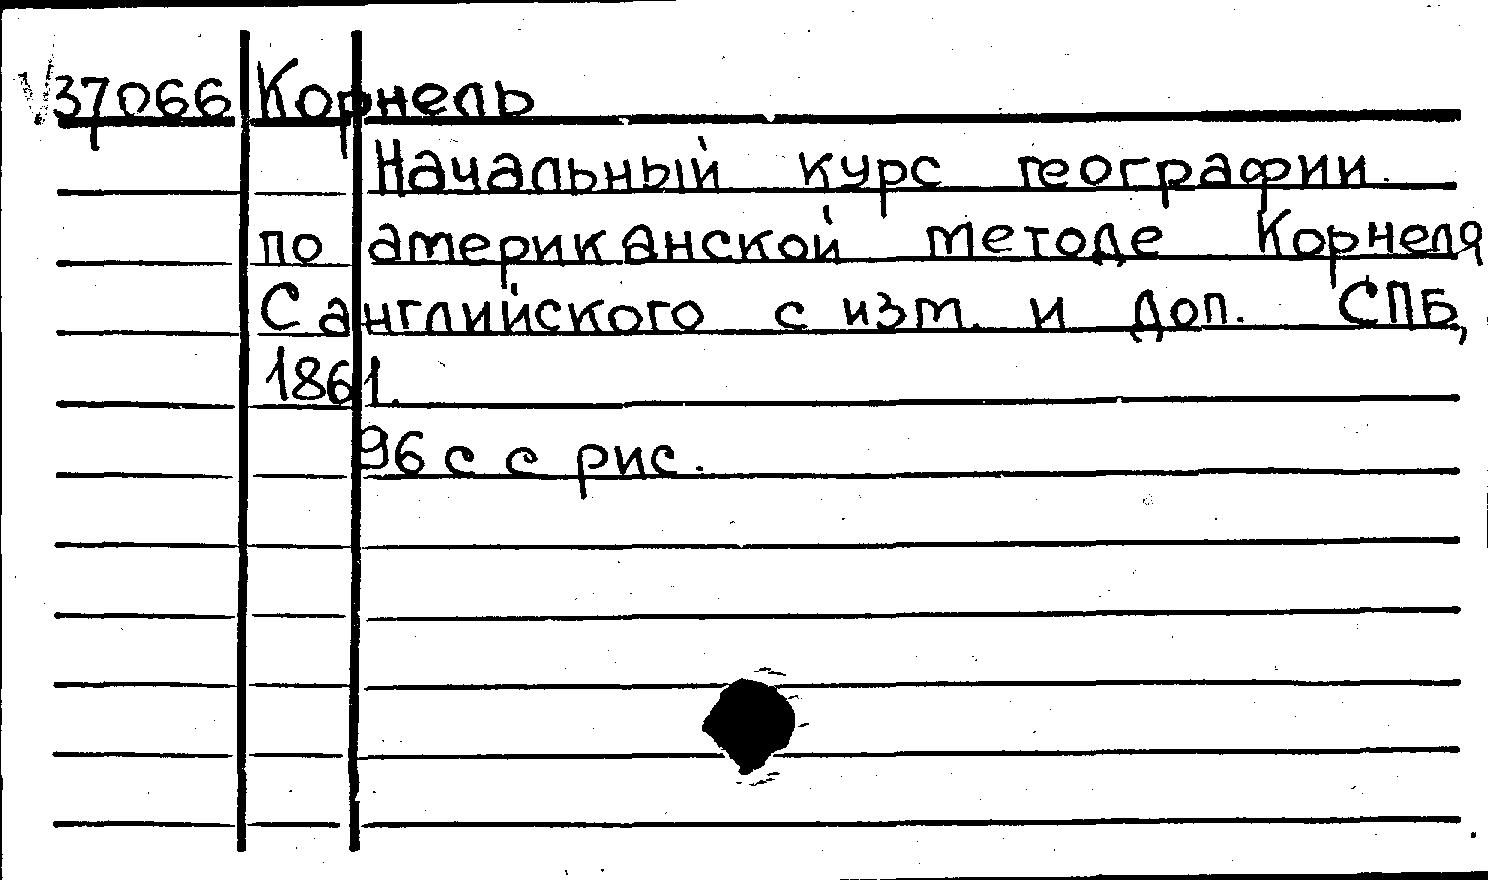 37066 Корнель
Начальный курс географии
по американской методе Корнеля
С английского с изм. и доп. СПБ,
1861.
96 с с рис.